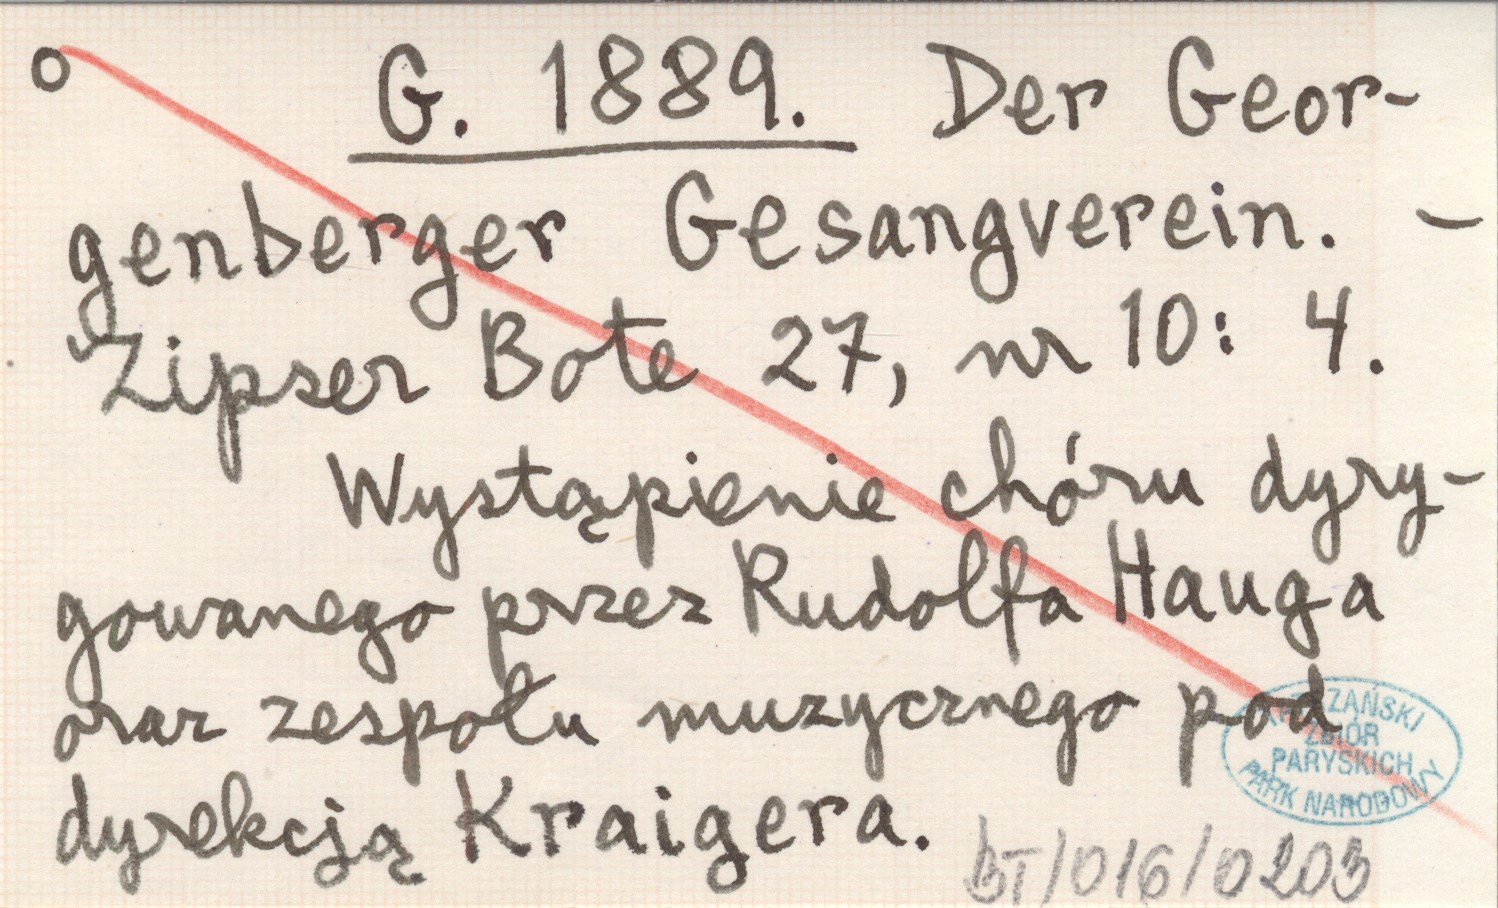 o G. 1889. Der Geor-
genberger Gesangverein. -
Zipser Bote 27, nr 10: 4.
Wystąpienie chóru dyry-
gowanego przez Rudolfa Hauga
oraz zespołu muzycznego pod
dyrekcją Kraigera.
ZBIÓR
PARYSKICH
PARK NARODOWY
BT/016/0203